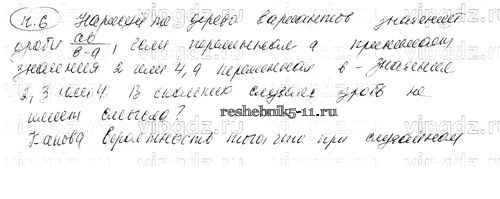 п.6 Нарисуй по дерево вариантов значений
дроби ab/b-a, если переменная a принимает
значения 2 или 4, а переменная b - значения
2, 3 или 4. В скольких случаях дробь не
имеет смысла?
reshebnik5-11.ru
Какова вероятность того что при случайном